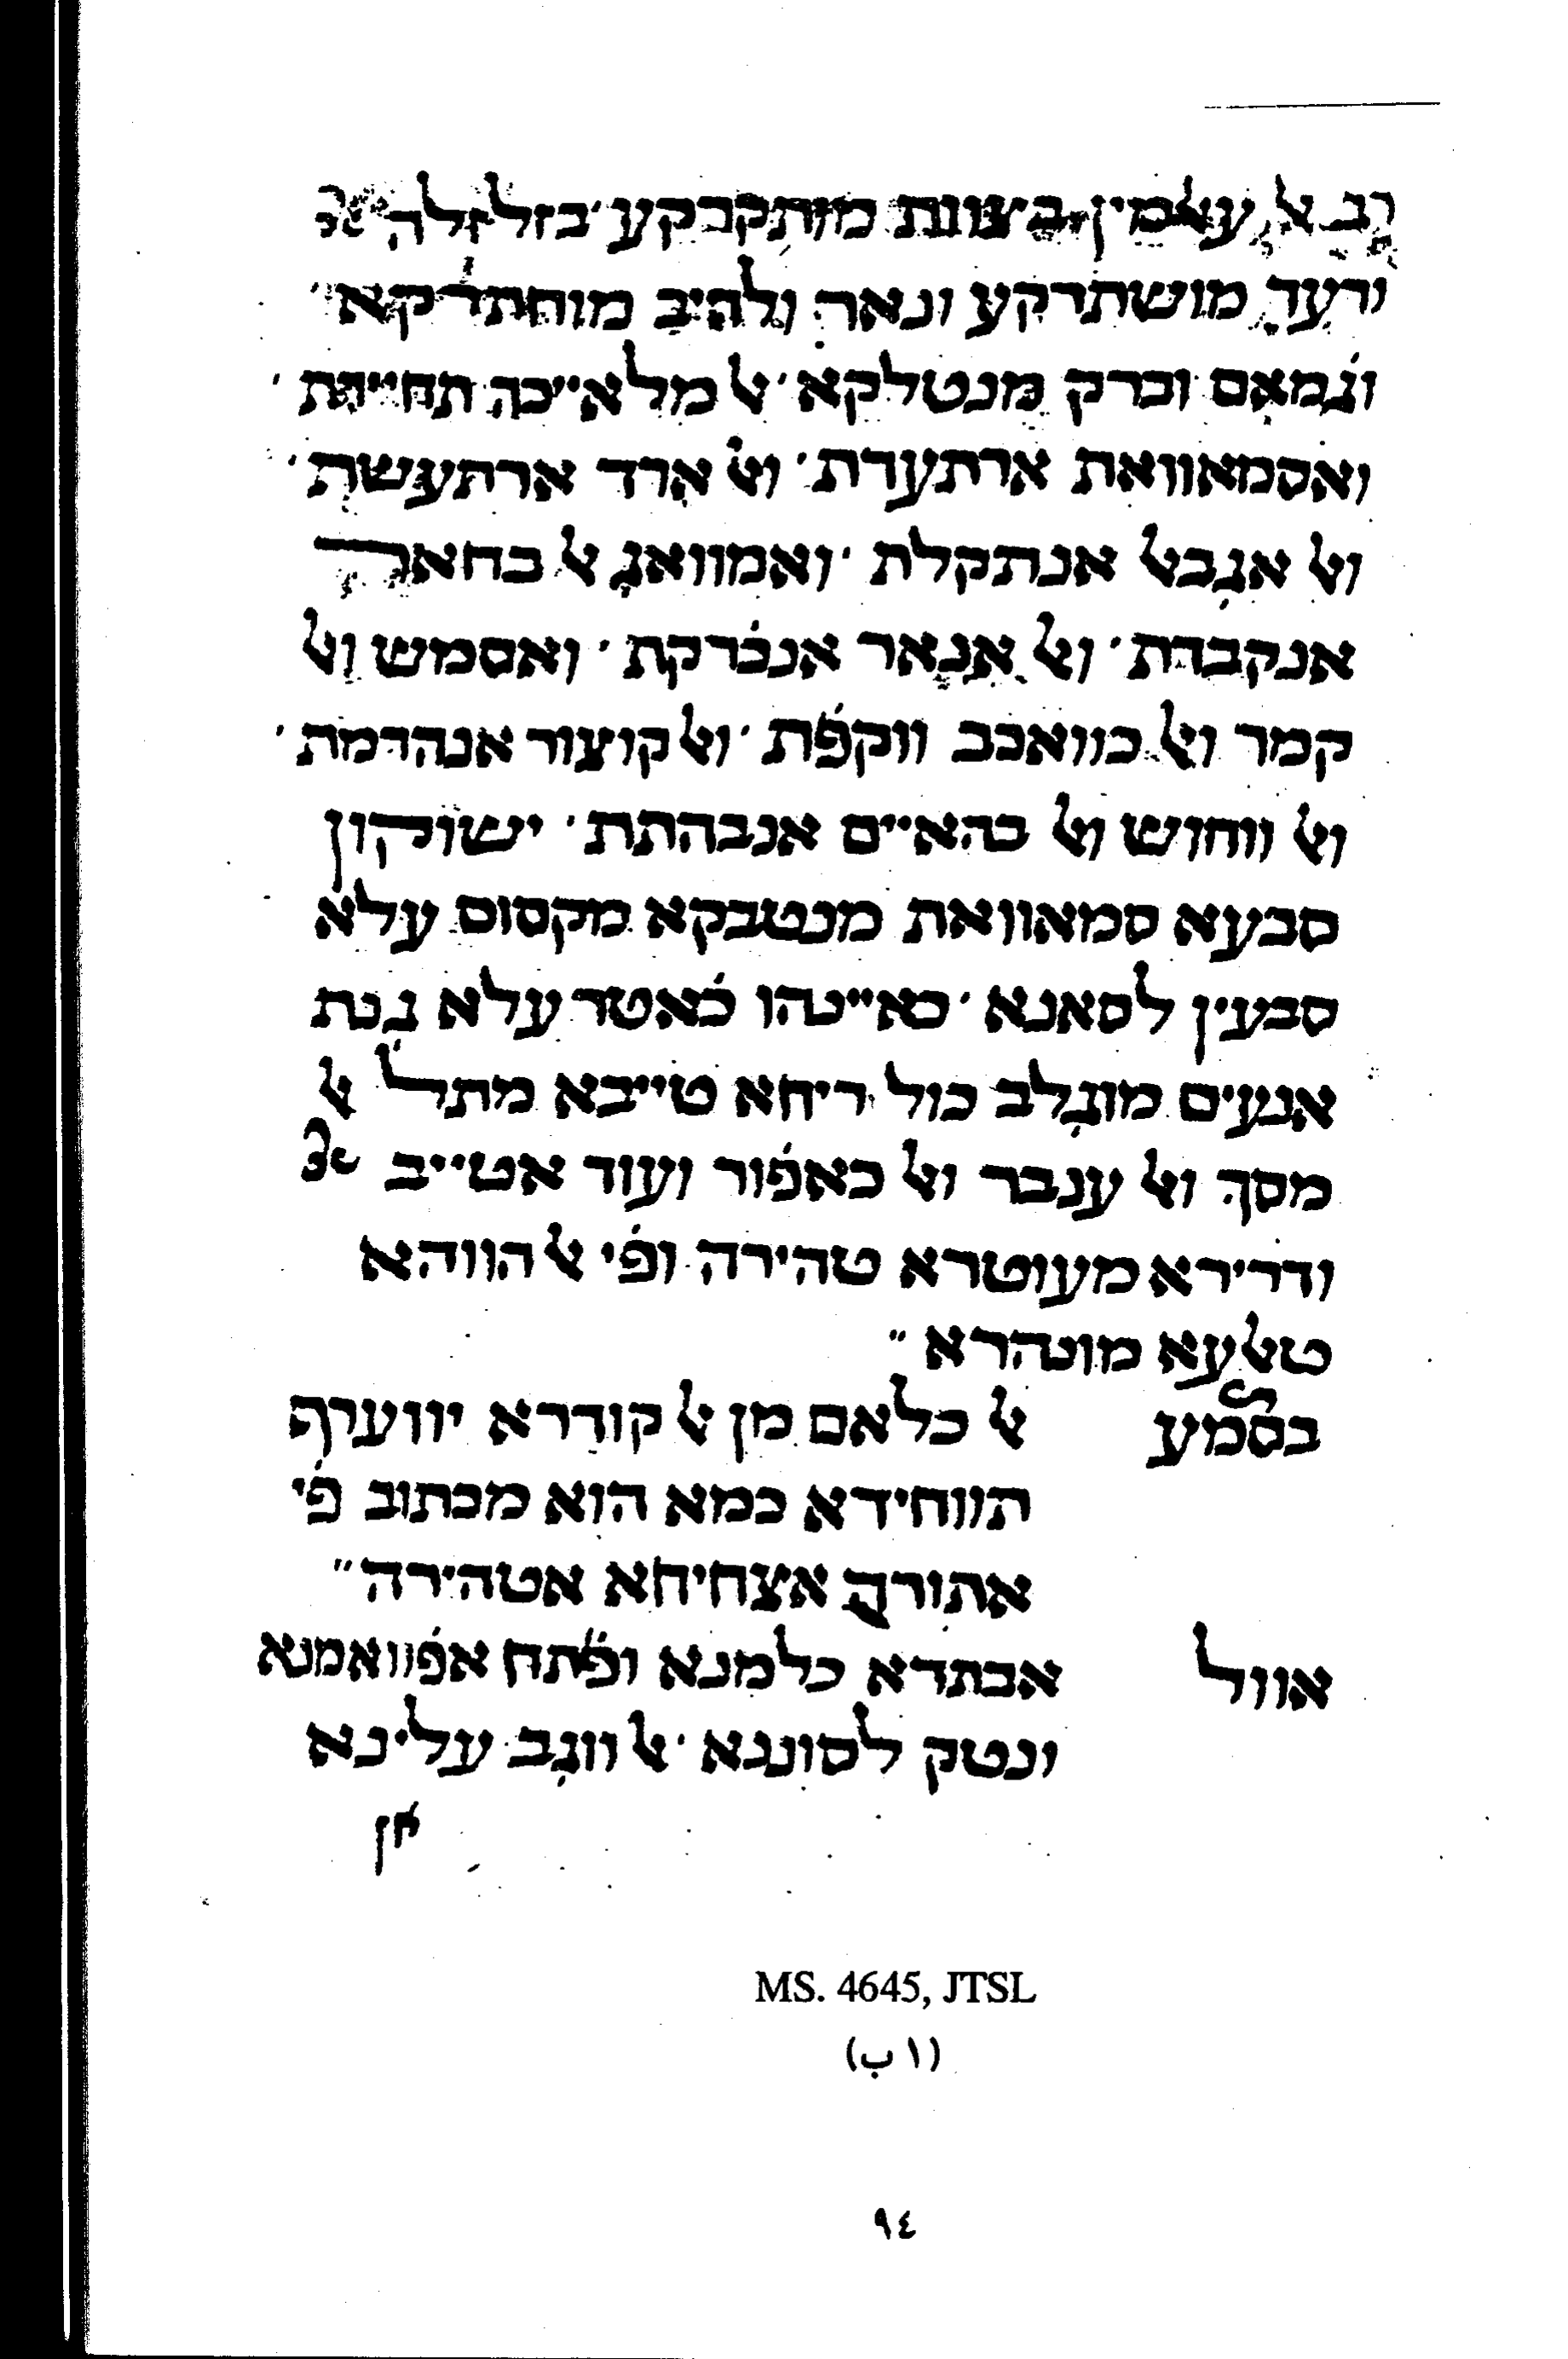 רב אל עאלמין בצוות מותקרקע ׳ בזלזלה
ורעד מושתרקע ונאר ולהיב מוחתרקא ׳
וגמאם וברק מנטלקא ׳ אל מלאייכה תחיירת ׳
ואסמאוואת ארתעדת ׳ ואל ארד ארתעשת ׳
ואל אגבאל אנתקלת ׳ ואמוואג אל בחאר
אנקבדת ׳ ואל אנאר אנכרקת ׳ ואסמש ואל
קמר ואל כוואכב ווקפ̇ת ׳ ואל קוצור אנהדמת ׳
ואל ווחוש ואל בהאיים אנבהתת ׳ ישוקון
סבעא סמאוואת מנטבקא מקסום עלא
סבעין לסאנא ׳ כאיינהו כ̇אטר עלא גנת
אנעים מוגלב כול ריחא טייבא מתל אל
מסך ואל ענבר ואל כאפ̇ור ועוד אטייב
ודרירא מעוטרא טהירה ופ̇י אל הווהא
טאלעא מונהרא ״
בסמע אל כלאם מן אל קודרא יווערף
תווחידא כמא הוא מכתוב פ̇י
אתורה אצחיחא אטהירה ״
אוול אבתדא כלמנא ופ̇תח אפ̇וואמנא
ונטק לסוננא ׳ אל ווגב עלינא
אן
MS. 4645, JTSL
(١ب)
٩٤